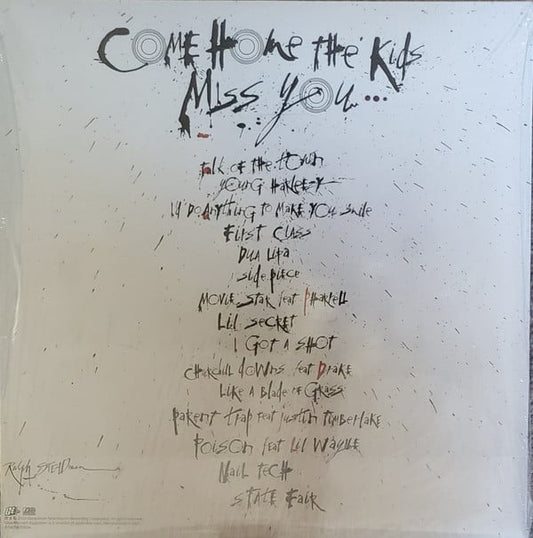 Come Home the Kids
Miss You...
Talk of the town
Young Harleezy
I'd Do Anything to Make You Smile
First Class
Dua Lipa
Side Piece
Movie Star feat Pharrell
Lil Secret
I Got A Shot
Churchill Downs feat Drake
Like A Blade of Grass
Parent Trap feat Justin Timberlake
Poison feat Lil Wayne
Nail Tech
State Fair
Ralph STEADman